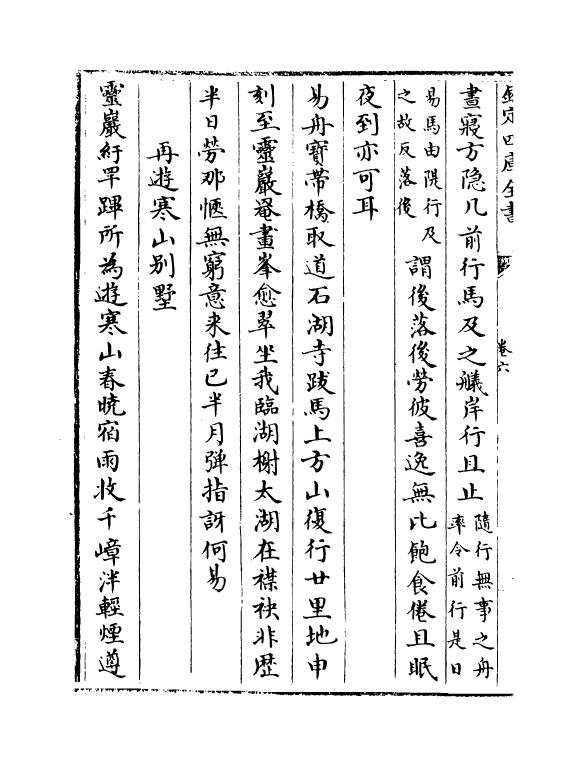 欽定四庫全書
卷六
晝寢方隐几前行馬及之艤岸行且止隨行無事之舟
率令前行是日
易馬由陡行及
之故反落後謂後落後勞彼喜逸無比飽食倦且眠
夜到亦可耳
易舟寶帶橋取道石湖寺跋馬上方山復行廿里地申
刻至靈巖菴畫峯愈翠坐我臨湖榭太湖在襟袂非歴
半日勞那愜無窮意来往已半月弹指訝何易
再遊寒山别墅
靈巖紆罕蹕所為遊寒山春暁宿雨收千嶂泮輕煙遵